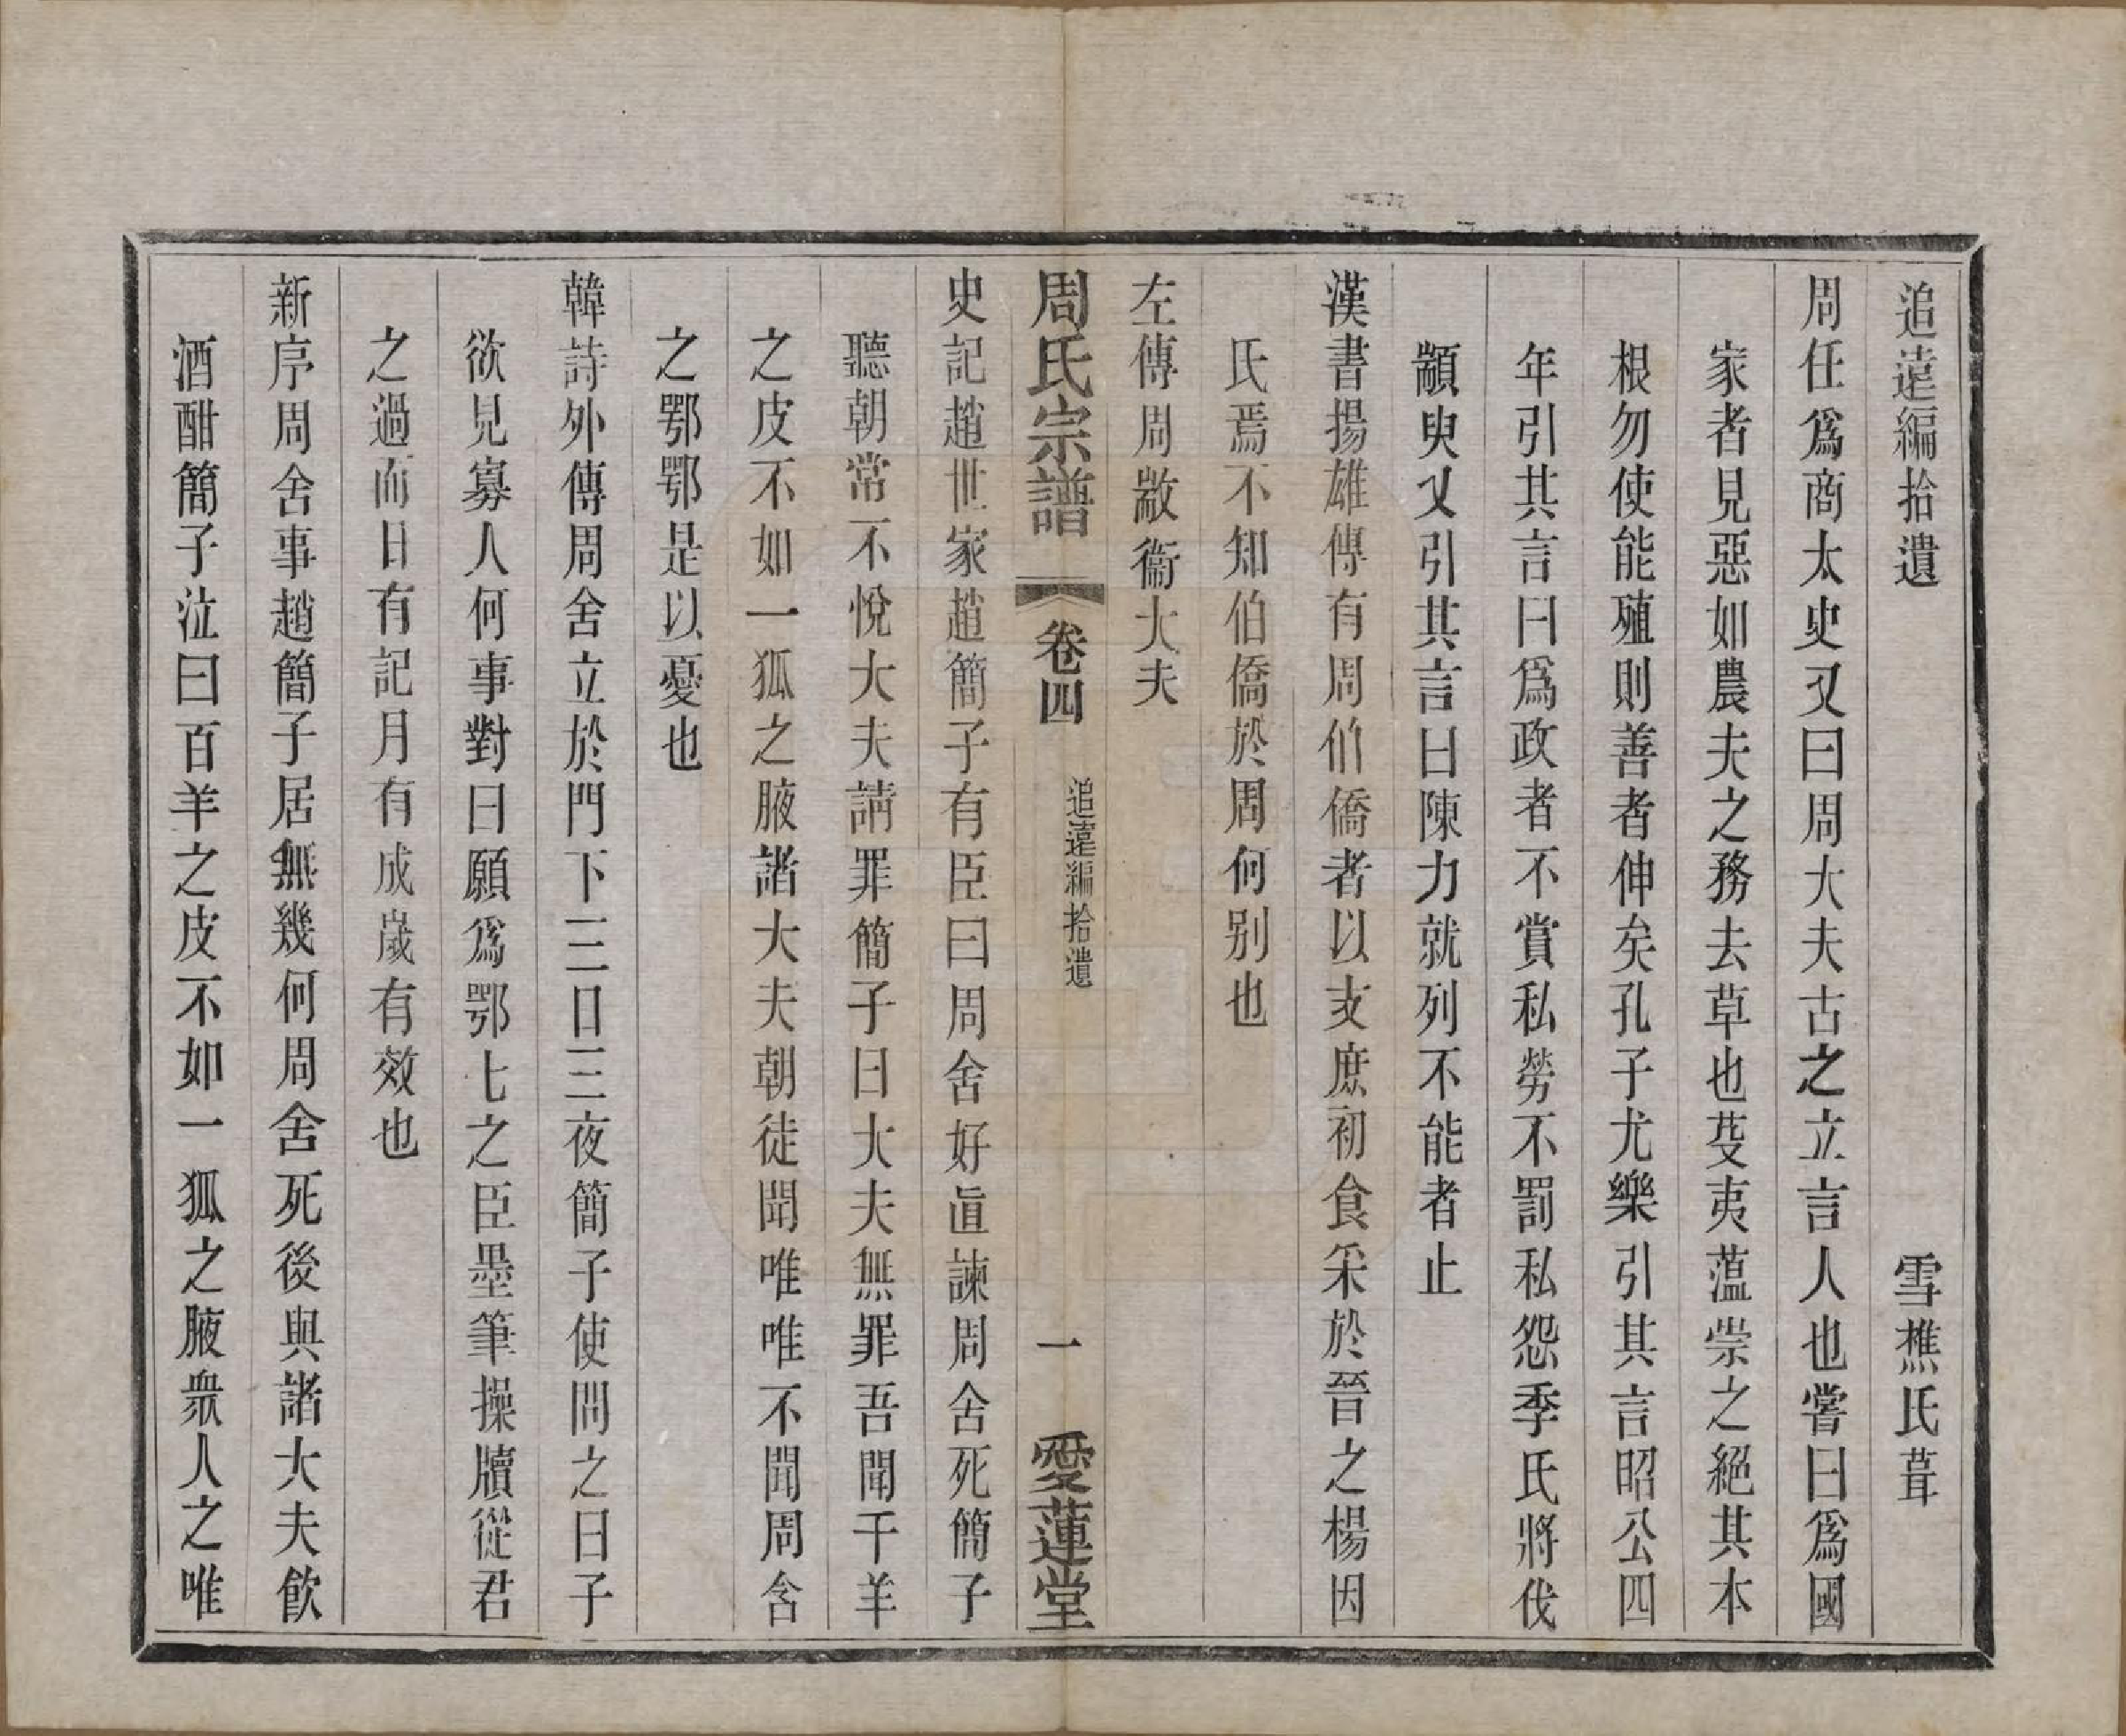 追遠編拾遺　雪樵氏葺
周任爲商太史又曰周大夫古之立言人也嘗曰爲國
家者見惡如農夫之務去草也芟夷薀崇之絕其本
根勿使能殖則善者伸矣孔子尤樂引其言昭公四
年引其言曰爲政者不賞私勞不罰私怨季氏將伐
顓臾又引其言曰陳力就列不能者止
漢書揚雄傳有周伯僑者以支庶初食采於晉之楊因
氏焉不知伯僑於周何别也
左傳周歂衞大夫
周氏宗譜　卷四　追遠編拾遺　一　愛蓮堂
史記趙世家趙簡子有臣曰周舍好直諫周舍死簡子
聽朝常不悅大夫請罪簡子曰大夫無罪吾聞千羊
之皮不如一狐之腋諸大夫朝徒聞唯唯不聞周舍
之鄂鄂是以憂也
韓詩外傳周舍立於門下三日三夜簡子使問之曰子
欲見寡人何事對曰願爲鄂七之臣墨筆操牘從君
之過而日有記月有成嵗有效也
新序周舍事趙簡子居無幾何周舍死後與諸大夫飲
酒酣簡子泣曰百羊之皮不如一狐之腋衆人之唯